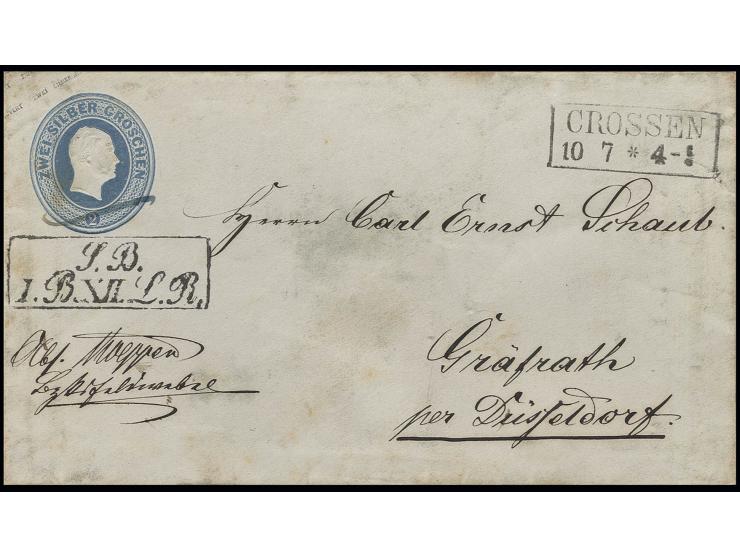 ZWEI SILBER GROSCHEN
2
CROSSEN
10 7 * 4-5
S. B.
I. B. XII. L. R.
Herrn Carl Ernst Schaub.
Abs. Moeppen
Bzksfeldwebel
Gräfrath
per Düsseldorf.